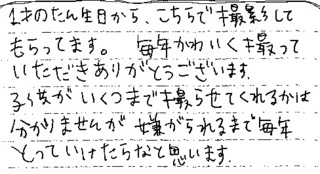 1才のたん生日から、こちらで撮影して
もらってます。 毎年かわいく撮って
いただきありがとうございます。
子供がいくつまで撮らせてくれるかは
分かりませんが嫌がられるまで毎年
とっていけたらなと思います。